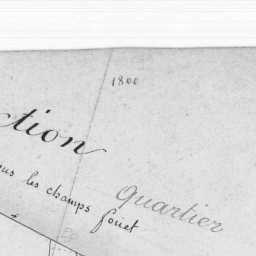 1800
ction
ous les champs fouet
Quartier